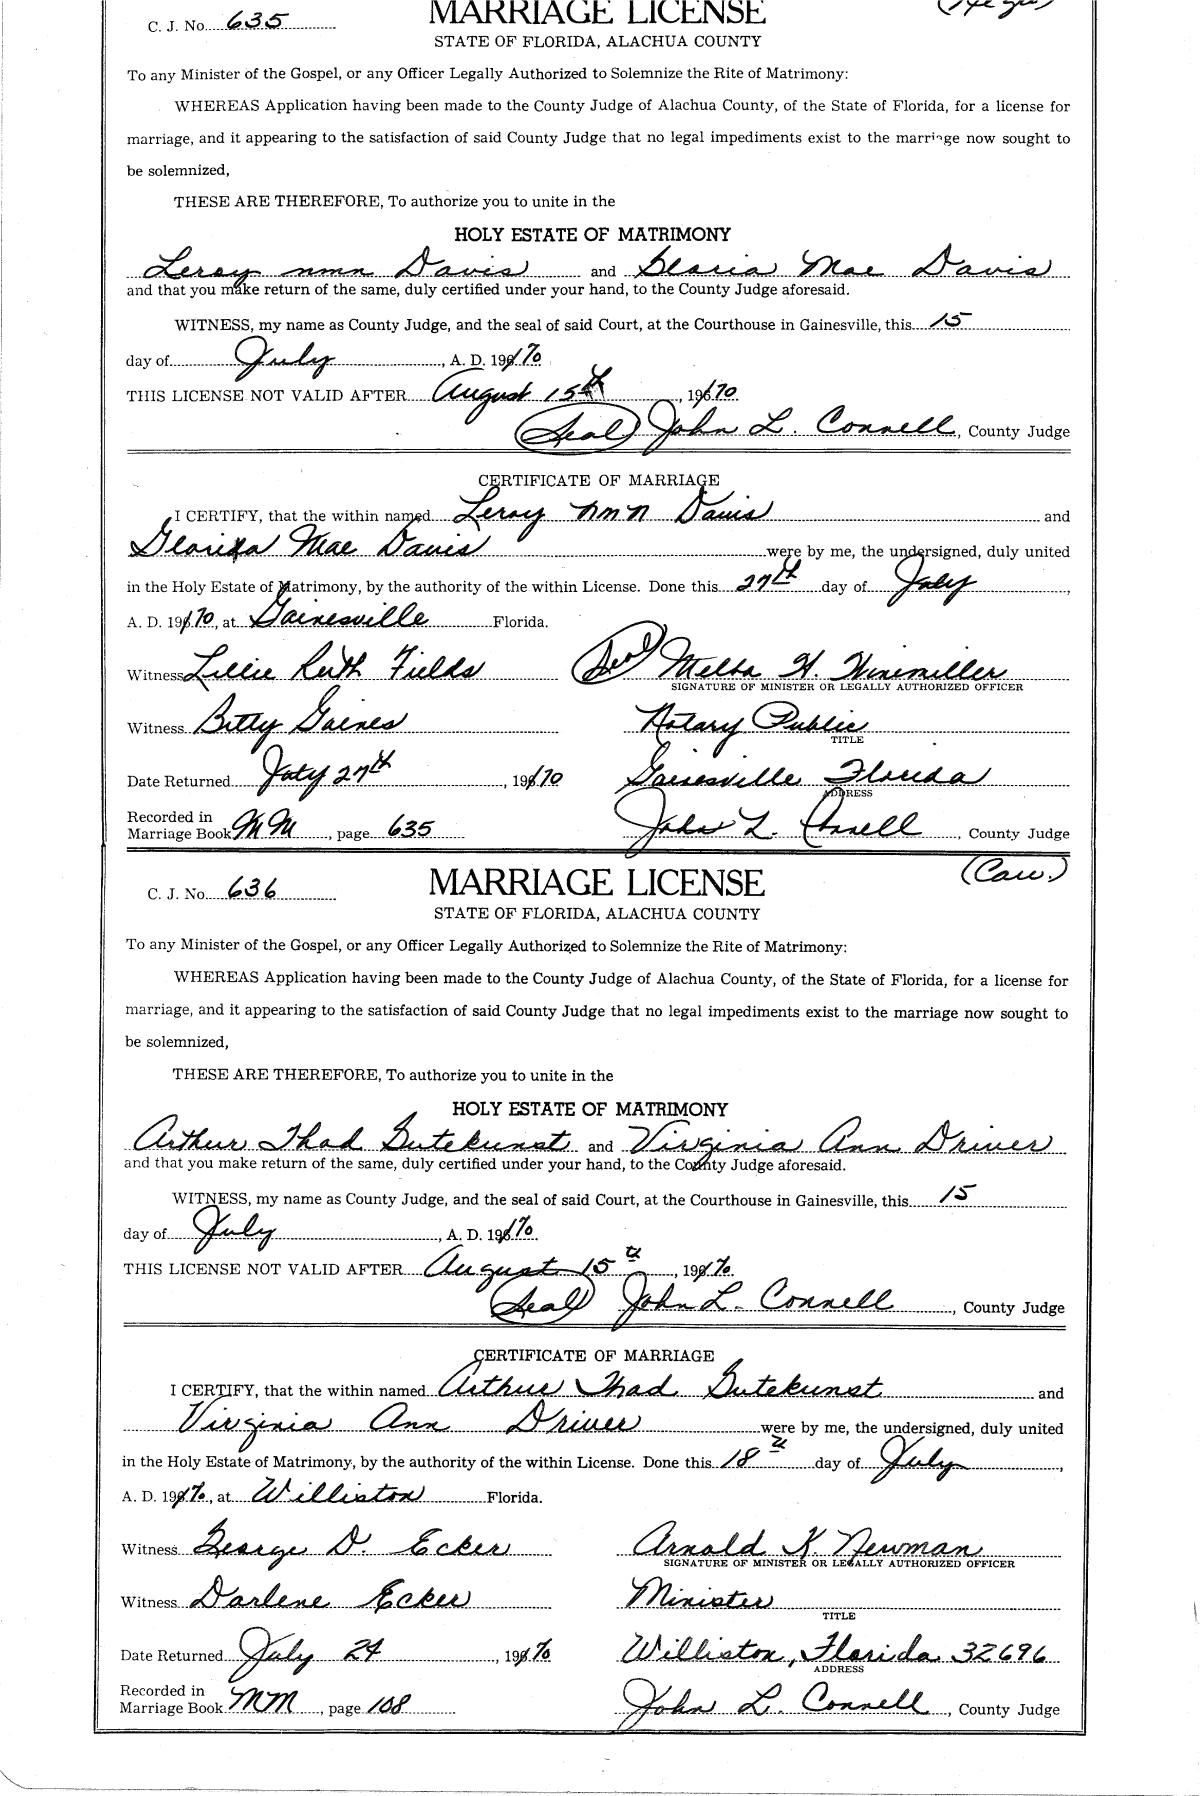 C. J. No. 635 MARRIAGE LICENSE
STATE OF FLORIDA, ALACHUA COUNTY
To any Minister of the Gospel, or any Officer Legally Authorized to Solemnize the Rite of Matrimony:
WHEREAS Application having been made to the County Judge of Alachua County, of the State of Florida, for a license for
marriage, and it appearing to the satisfaction of said County Judge that no legal impediments exist to the marriage now sought to
be solemnized,
THESE ARE THEREFORE, To authorize you to unite in the
HOLY ESTATE OF MATRIMONY
Leroy nmn Davis and Gloria Mae Davis
and that you make return of the same, duly certified under your hand, to the County Judge aforesaid.
WITNESS, my name as County Judge, and the seal of said Court, at the Courthouse in Gainesville, this 15
day of July, A. D. 1970
THIS LICENSE NOT VALID AFTER August 15th, 1970
(Seal) John L. Connell, County Judge
CERTIFICATE OF MARRIAGE
I CERTIFY, that the within named Leroy nmn Davis and
Gloria Mae Davis were by me, the undersigned, duly united
in the Holy Estate of Matrimony, by the authority of the within License. Done this 27th day of July,
A. D. 1970, at Gainesville Florida.
Witness Lillie Ruth Fields (Seal) Melba H. Winemiller
SIGNATURE OF MINISTER OR LEGALLY AUTHORIZED OFFICER
Witness Betty Gaines Notary Public
TITLE
Date Returned July 27th, 1970 Gainesville Florida
ADDRESS
Recorded in
Marriage Book MM, page 635 John L. Connell, County Judge
(Cau.)
C. J. No. 636 MARRIAGE LICENSE
STATE OF FLORIDA, ALACHUA COUNTY
To any Minister of the Gospel, or any Officer Legally Authorized to Solemnize the Rite of Matrimony:
WHEREAS Application having been made to the County Judge of Alachua County, of the State of Florida, for a license for
marriage, and it appearing to the satisfaction of said County Judge that no legal impediments exist to the marriage now sought to
be solemnized,
THESE ARE THEREFORE, To authorize you to unite in the
HOLY ESTATE OF MATRIMONY
Arthur Thad Gutekunst and Virginia Ann Driver
and that you make return of the same, duly certified under your hand, to the County Judge aforesaid.
WITNESS, my name as County Judge, and the seal of said Court, at the Courthouse in Gainesville, this 15
day of July, A. D. 1970
THIS LICENSE NOT VALID AFTER August 15th, 1970
(Seal) John L. Connell, County Judge
CERTIFICATE OF MARRIAGE
I CERTIFY, that the within named Arthur Thad Gutekunst and
Virginia Ann Driver were by me, the undersigned, duly united
in the Holy Estate of Matrimony, by the authority of the within License. Done this 18th day of July,
A. D. 1970, at Williston Florida.
Witness George D. Ecker Arnold K. Newman
SIGNATURE OF MINISTER OR LEGALLY AUTHORIZED OFFICER
Witness Darlene Ecker Minister
TITLE
Date Returned July 24, 1970 Williston, Florida 32696
ADDRESS
Recorded in
Marriage Book MM, page 108 John L. Connell, County Judge